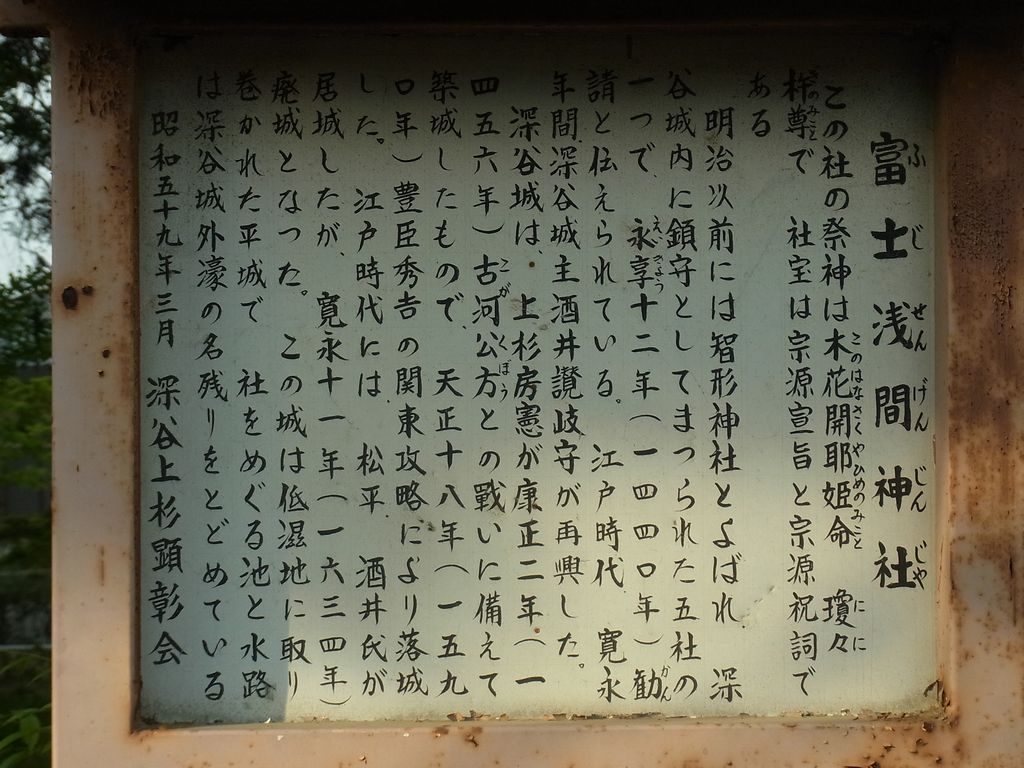 富士浅間神社
ふじせんげんじんじゃ
この社の祭神は木花開耶姫命　瓊々
このはなさくやひめのみこと　にに
杵尊で　社宝は宗源宣旨と宗源祝詞で
ある
明治以前には智形神社とよばれ　深
谷城内に鎮守としてまつられた五社の
一つで　永享十二年（一四四〇年）勧
えきょう　かん
請と伝えられている。江戸時代　寛永
年間深谷城主酒井讃岐守が再興した。
深谷城は、上杉房憲が康正二年（一
四五六年）古河公方との戦いに備えて
こがくぼう
築城したもので　天正十八年（一五九
〇年）豊臣秀吉の関東攻略により落城
した。江戸時代には　松平　酒井氏が
居城したが　寛永十一年（一六三四年）
廃城となった。この城は低湿地に取り
巻かれた平城で　社をめぐる池と水路
は深谷城外濠の名残りをとどめている
昭和五十九年三月　深谷上杉顕彰会